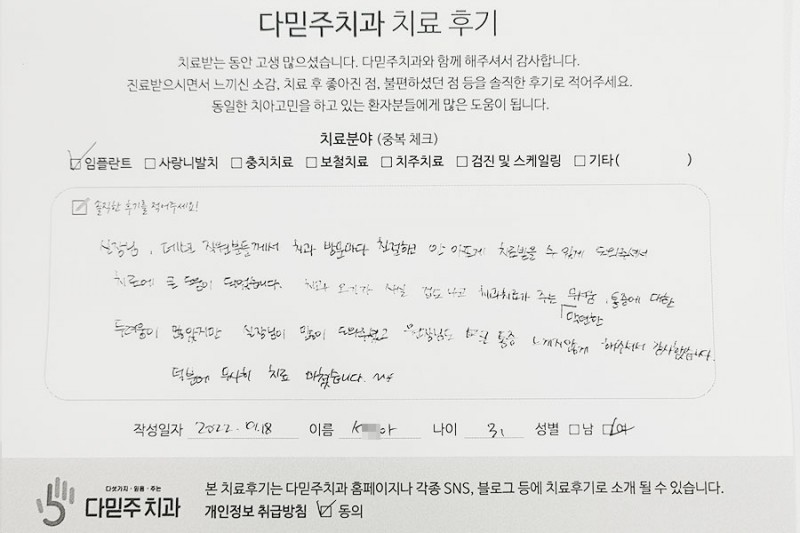 다믿주치과 치료 후기
치료받는 동안 고생 많으셨습니다. 다믿주치과와 함께 해주셔서 감사합니다.
진료받으시면서 느끼신 소감, 치료 후 좋아진 점, 불편하셨던 점 등을 솔직한 후기로 적어주세요.
동일한 치아고민을 하고 있는 환자분들에게 많은 도움이 됩니다.
치료분야 (중복 체크)
임플란트 사랑니발치 충치치료 보철치료 치주치료 검진 및 스케일링 기타( )
솔직한 후기를 적어주세요!
실장님, 데스크 직원분들께서 치과 방문마다 친절하고 안 아프게 치료받을 수 있게 도와주셔서
치료에 큰 도움이 되었습니다. 치과 오기가 사실 겁도 나고 치과치료가 주는 무서움, 통증에 대한
막연한
두려움이 많았지만 실장님이 많이 도와주셨고 원장님도 통증 느껴지않게 해주셔서 감사했습니다.
덕분에 무사히 치료 마쳤습니다.
작성일자 2022.01.18 이름 아 나이 31 성별 남 여
다섯가지·믿음·주는
다믿주 치과
본 치료후기는 다믿주치과 홈페이지나 각종 SNS, 블로그 등에 치료후기로 소개 될 수 있습니다.
개인정보 취급방침 동의